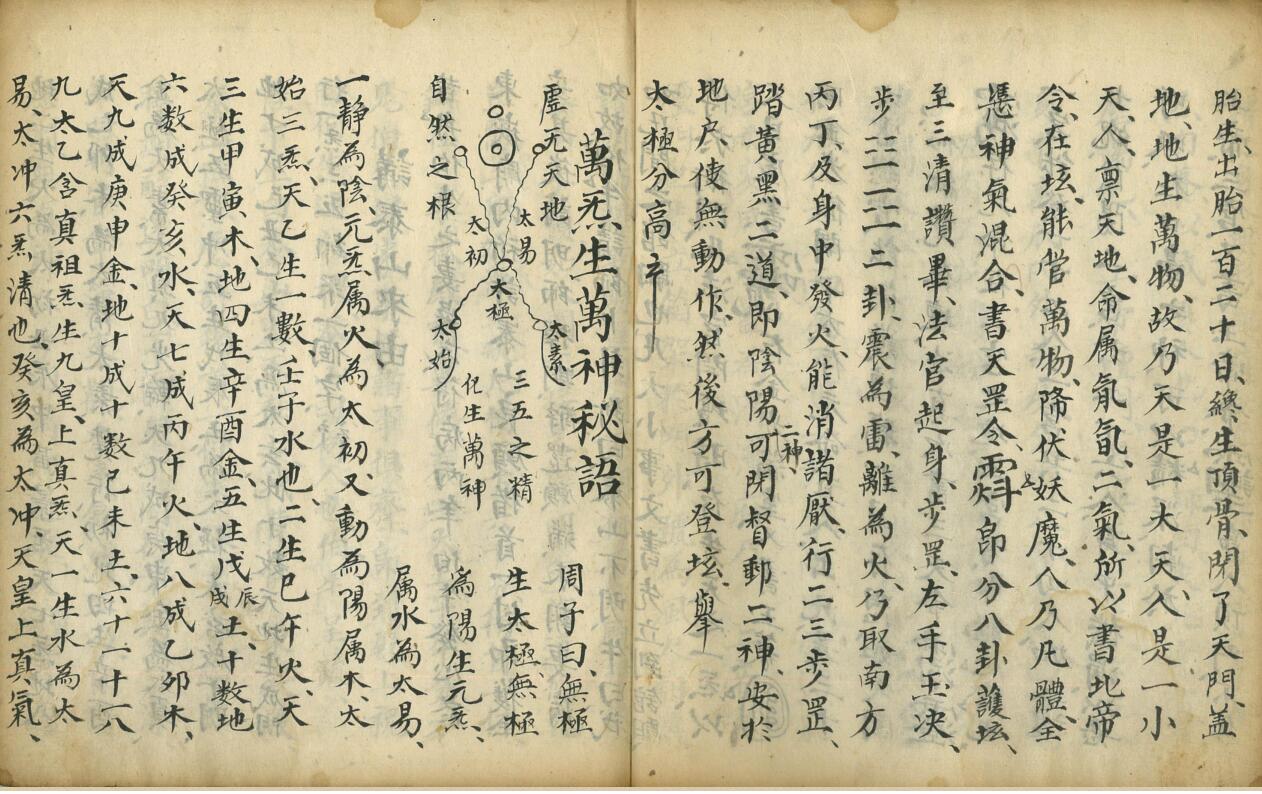 胎生、出胎一百二十日、終、生頂骨、閉了天門、盖
地、地生萬物、故乃天是一大天、人是一小
天、人禀天地、命属氤氲二氣、所以書北帝
令、在坛、能管萬物、降伏妖魔、人乃凡體、全
慿神氣混合、書天罡令、 昴分八卦護坛、
至三清讚畢、法官起身、步罡、左手玉决、
步 二卦、震為雷、離為火、乃取南方
丙丁、及身中發火、能消諸厭、行二三步罡、
踏黃黑二道、即陰陽二神、可閉督郵二神、安於
地户、使無動作、然後方可登坛、舉
太極分高
萬炁生萬神秘語
虗无天地
自然之根
太易
太初
太極
太素
太始
三五之精
化生萬神
周子曰、無極
生太極、無極
為陽生元炁、
属水為太易、
一静為陰、元炁属火為太初、又動為陽属木、太
始三炁、天乙生一數、壬子水也、二生巳午火、天
三生甲寅木、地四生辛酉金、五生戊辰戌土、十數地
六數成癸亥水、天七成丙午火、地八成乙卯木、
天九成庚申金、地十成十數己未土、六十一十八
九太乙含真祖炁生九皇、上真炁、天一生水為太
易、太冲六炁清也、癸亥為太冲、天皇上真氣、